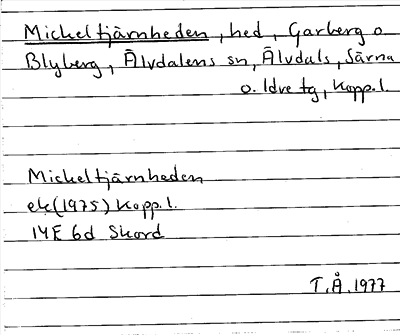 Mickeltjärnheden, hed, Garberg o
Blyberg, Älvdalens sn, Älvdals, Särna
o. Idre tg, Kopp.l.
Mickeltjärnheden
ek(1975) Kopp.l.
14E 6d Skord
T.Å. 1977